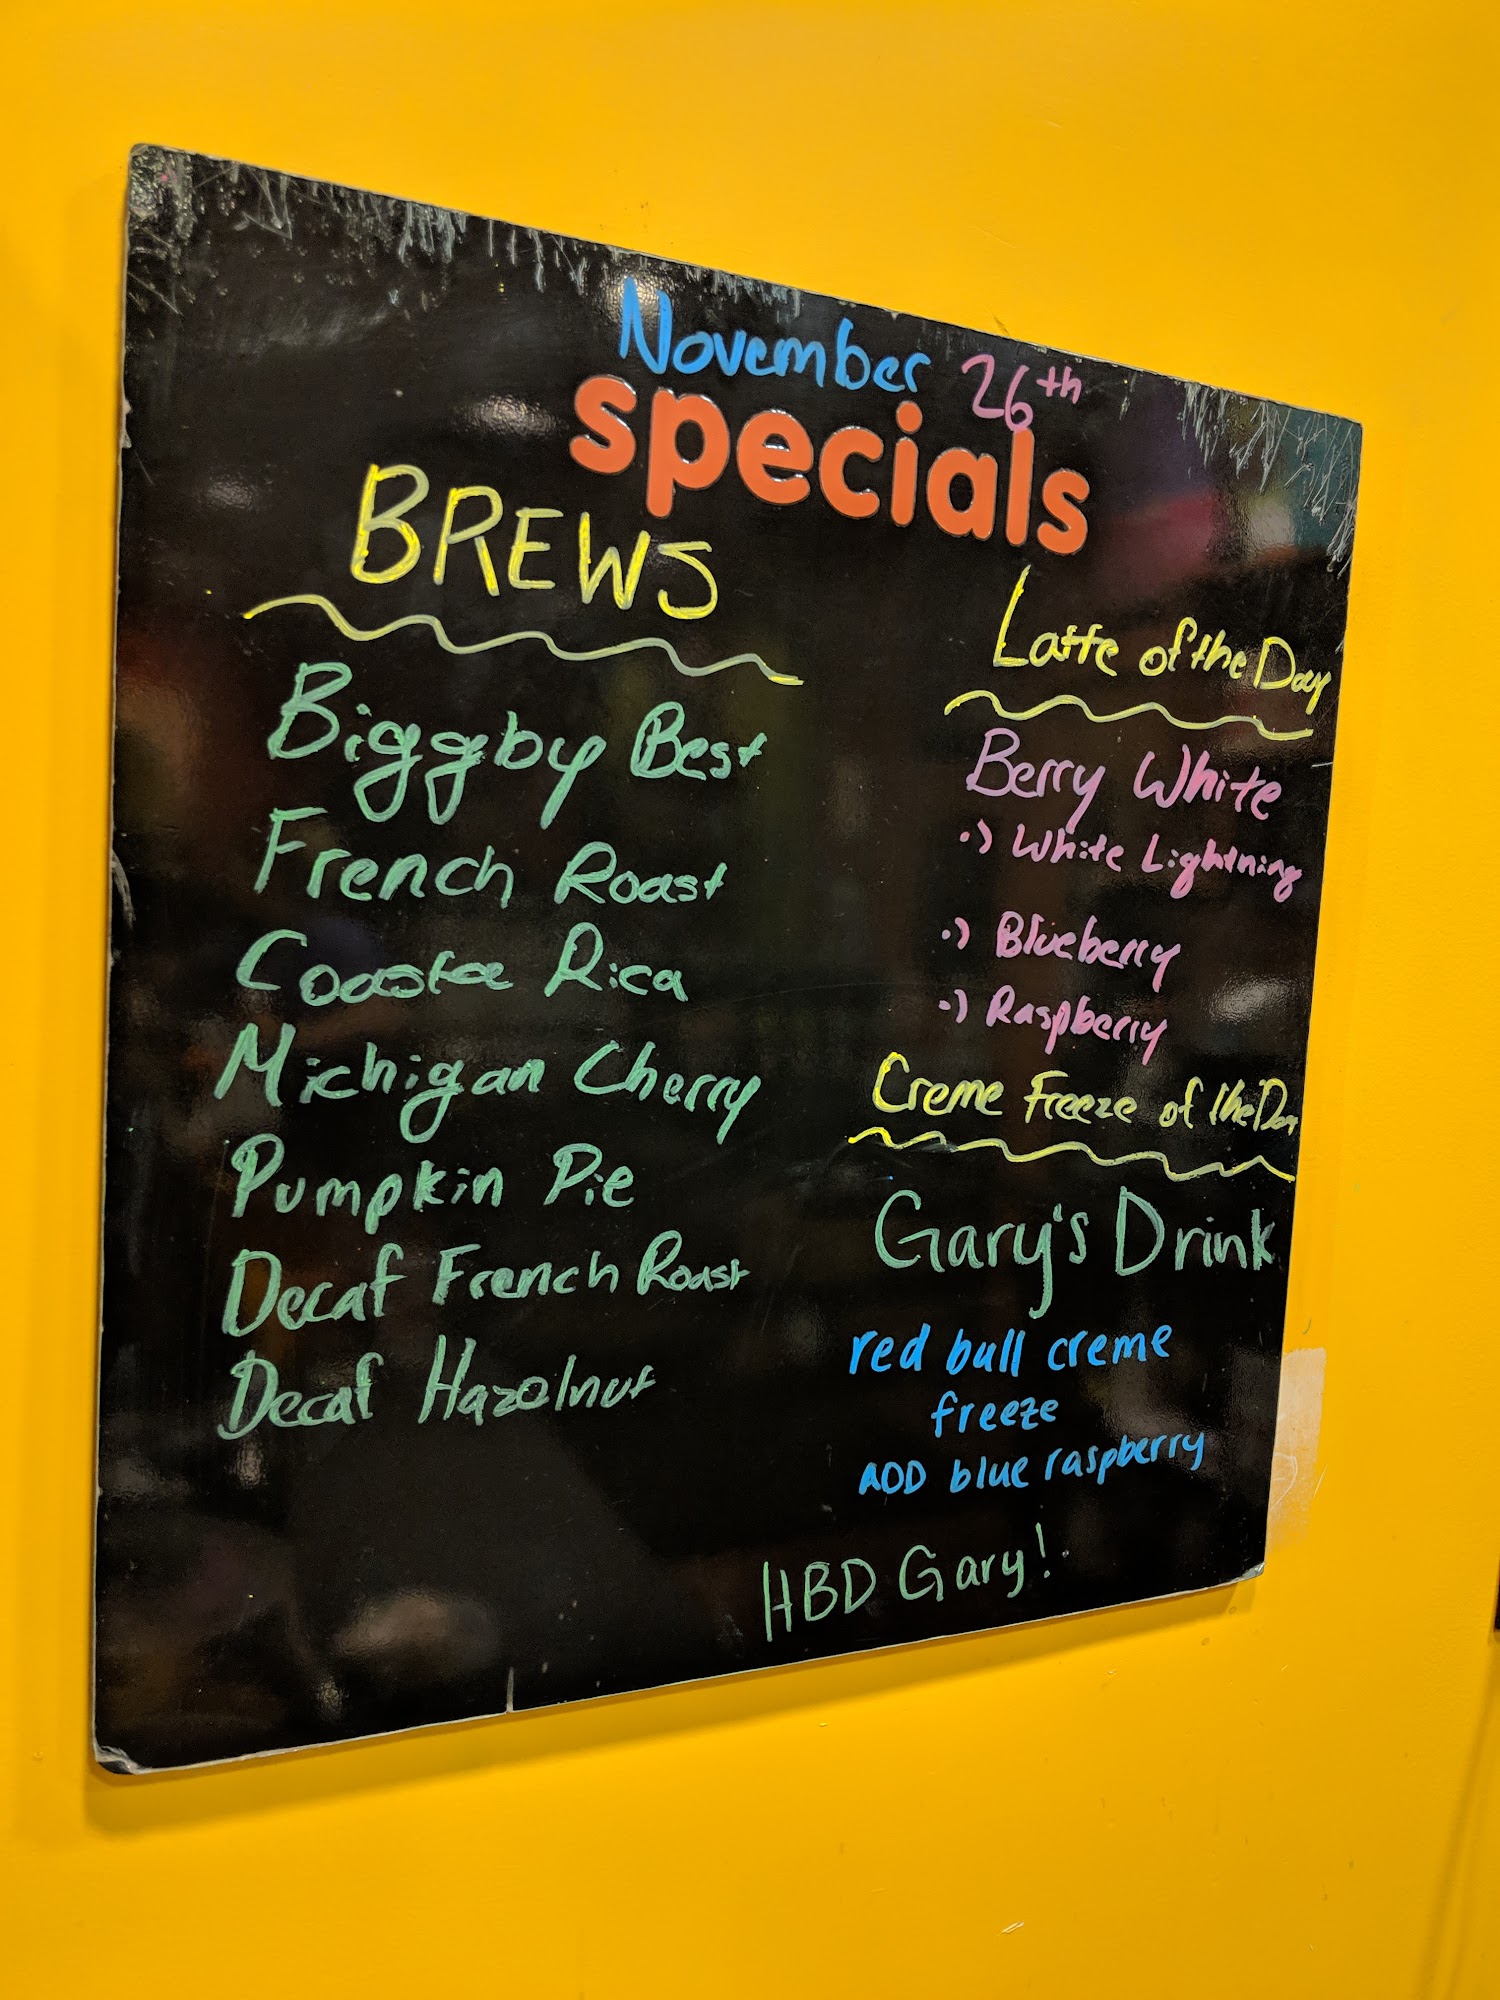 November 26th
specials
BREWS
Biggby Best
French Roast
Coasta Rica
Michigan Cherry
Pumpkin Pie
Decaf French Roast
Decaf Hazelnut
Latte of the Day
Berry White
·) White Lightning
·) Blueberry
·) Raspberry
Creme Freeze of the Day
Gary's Drink
red bull creme
freeze
ADD blue raspberry
HBD Gary!